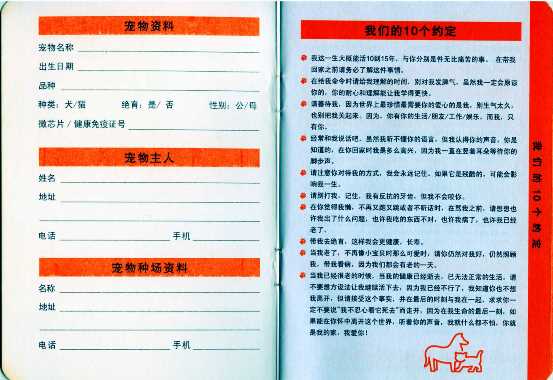 宠物资料
宠物名称
出生日期
品种
种类：犬/猫 绝育：是/否 性别：公/母
微芯片/健康免疫证号
宠物主人
姓名
地址
电话 手机
宠物种场资料
名称
地址
电话 手机
我们的10个约定
我这一生大概能活10到15年，与你分别是件无比痛苦的事，在带我
回家之前请务必了解这件事情。
在给我命令时请给我理解的时间，别对我发脾气，虽然我一定会原谅
你的，你的耐心和理解能让我学得更快。
请善待我，因为世界上最珍惜最需要你爱心的是我，别生气太久，
也别把我关起来，因为，你有你的生活/朋友/工作/娱乐，而我，只
有你。
经常和我说话吧，虽然我听不懂你的语言，但我认得你的声音，你是
知道的，在你回家时我是多么高兴，因为我一直在竖着耳朵等待你的
脚步声。
请注意你对待我的方式，我会永远记住，如果它是残酷的，可能会影
响我一生。
请别打我，记住，我有反抗的牙齿，但我不会咬你。
在你觉得我懒，不再又跑又跳或者不听话时，在骂我之前，请想想也
许我出了什么问题，也许我吃的东西不对，也许我病了，也许我已经
老了。
带我去绝育，这样我会更健康，长寿。
当我老了，不再像小宝贝时那么可爱时，请你仍然对我好，仍然照顾
我，带我看病，因为我们都会有老的一天。
当我已经很老的时候，当我的健康已经逝去，已无法正常的生活，请
不要想方设法让我继续活下去，因为我已经不行了，我知道你也不想
我离开，但请接受这个事实，并在最后的时刻与我在一起，求求你一
定不要说"我不忍心看它死去"而走开，因为在我生命的最后一刻，如
果能在你怀中离开这个世界，听着你的声音，我就什么都不怕，你就
是我的家，我爱你！
我们的10个约定